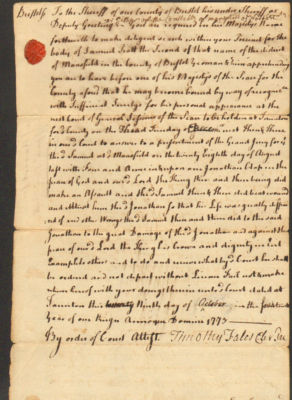 Bristol ss To the Sheriff of our County of Bristol his under Sheriff or
Deputy Greeting
You are required in his Majestys Name
forthwith to make diligent search within your Precinct for the
body of Samuel Scott the Second of that name of the district
of Mansfield in the County of Bristol Yeoman & him apprehending
you are to have before one of his Majestys of the Peace for the
County aforesaid that he may become bound by way of recognizance
with Sufficient Suretys for his personal appearance at the
next Court of General Sessions of the Peace to be holden at Taunton
for County on the Third Tuesday of then & there
in our Court to answer to a presentment of the Grand Jury for
the Samuel at Mansfield on the twenty Eighth day of August
last with Force and Arms in & upon one Jonathan in the
peace of God and our Lord the King then and there being did
make an Assault and the Samuel then & there did beat wound
and the Jonathan so that his Life was greatly
of and other Wrongs the Samuel then and there did to the said
Jonathan to the great Damage of the Jonathan and against the
peace of our Lord the King his Crown and dignity
Example to others and to do and receive what by Court he shall
be ordered and not depart without Licence Fail not & make
return hereof with your doings therein unto Court dated at
Taunton this Ninth day of October in the
Year of our Reign Annoque Domini 1773
By order of Court Attest Timothy Fales